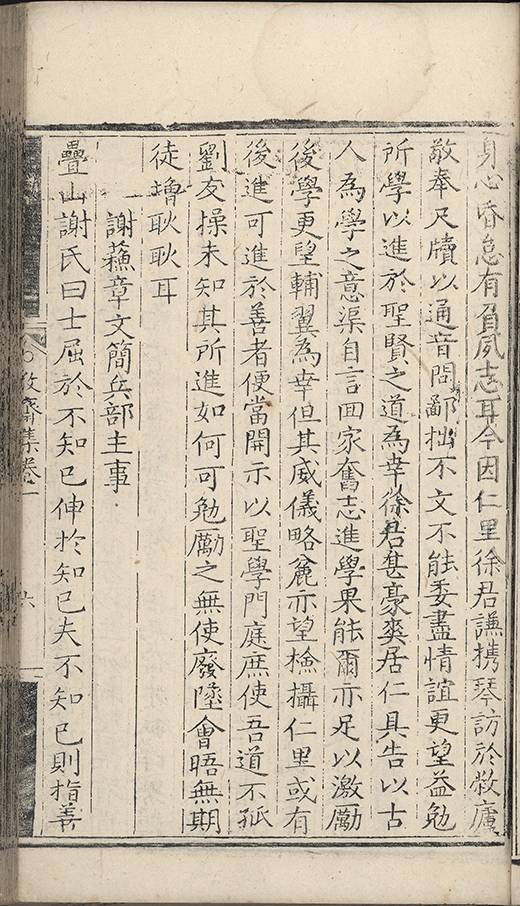 身心昏怠有負夙志耳今因仁里徐君謙攜琴訪於敝廬
敬奉尺牘以通音問鄙拙不文不能委盡情誼更望益勉
所學以進於聖賢之道為幸徐君甚豪爽居仁具告以古
人為學之意渠自言回家奮志進學果能爾亦足以激勵
後學更望輔翼為幸但其威儀略麄亦望檢攝仁里或有
後進可進於善者便當開示以聖學門庭庶使吾道不孤
劉友操未知其所進如何可勉勵之無使廢墜會晤無期
徒增耿耿耳
謝蘓章文簡兵部主事
疊山謝氏曰士屈於不知已伸於知已夫不知已則指善
敬齋集卷一
六